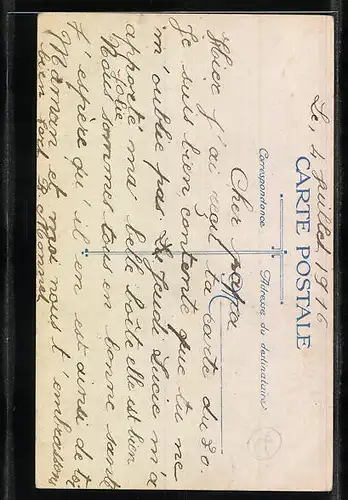 Le, 4 Juillet 1916
CARTE POSTALE
Correspondance
Adresse du destinataire
Cher papa
Hier j'ai reçu ta carte du 30.
Je suis bien contente que tu ne
m'oublie pas. Jeudi Lucie m'a
apporté ma belle boîte elle est bien
jolie
Nous sommes tous en bonne santé
J'espère qu'il en est ainsi de toi
Maman et moi nous t'embrassons
bien fort